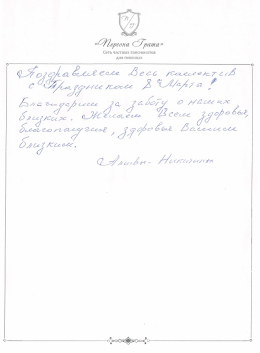 «Персона Грата»
Сеть частных пансионатов
для пожилых
Поздравляем Весь коллектив
с Праздником 8 Марта!
Благодарим за заботу о наших
близких. Желаем Всем здоровья,
благополучия, здоровья Вашим
близким.